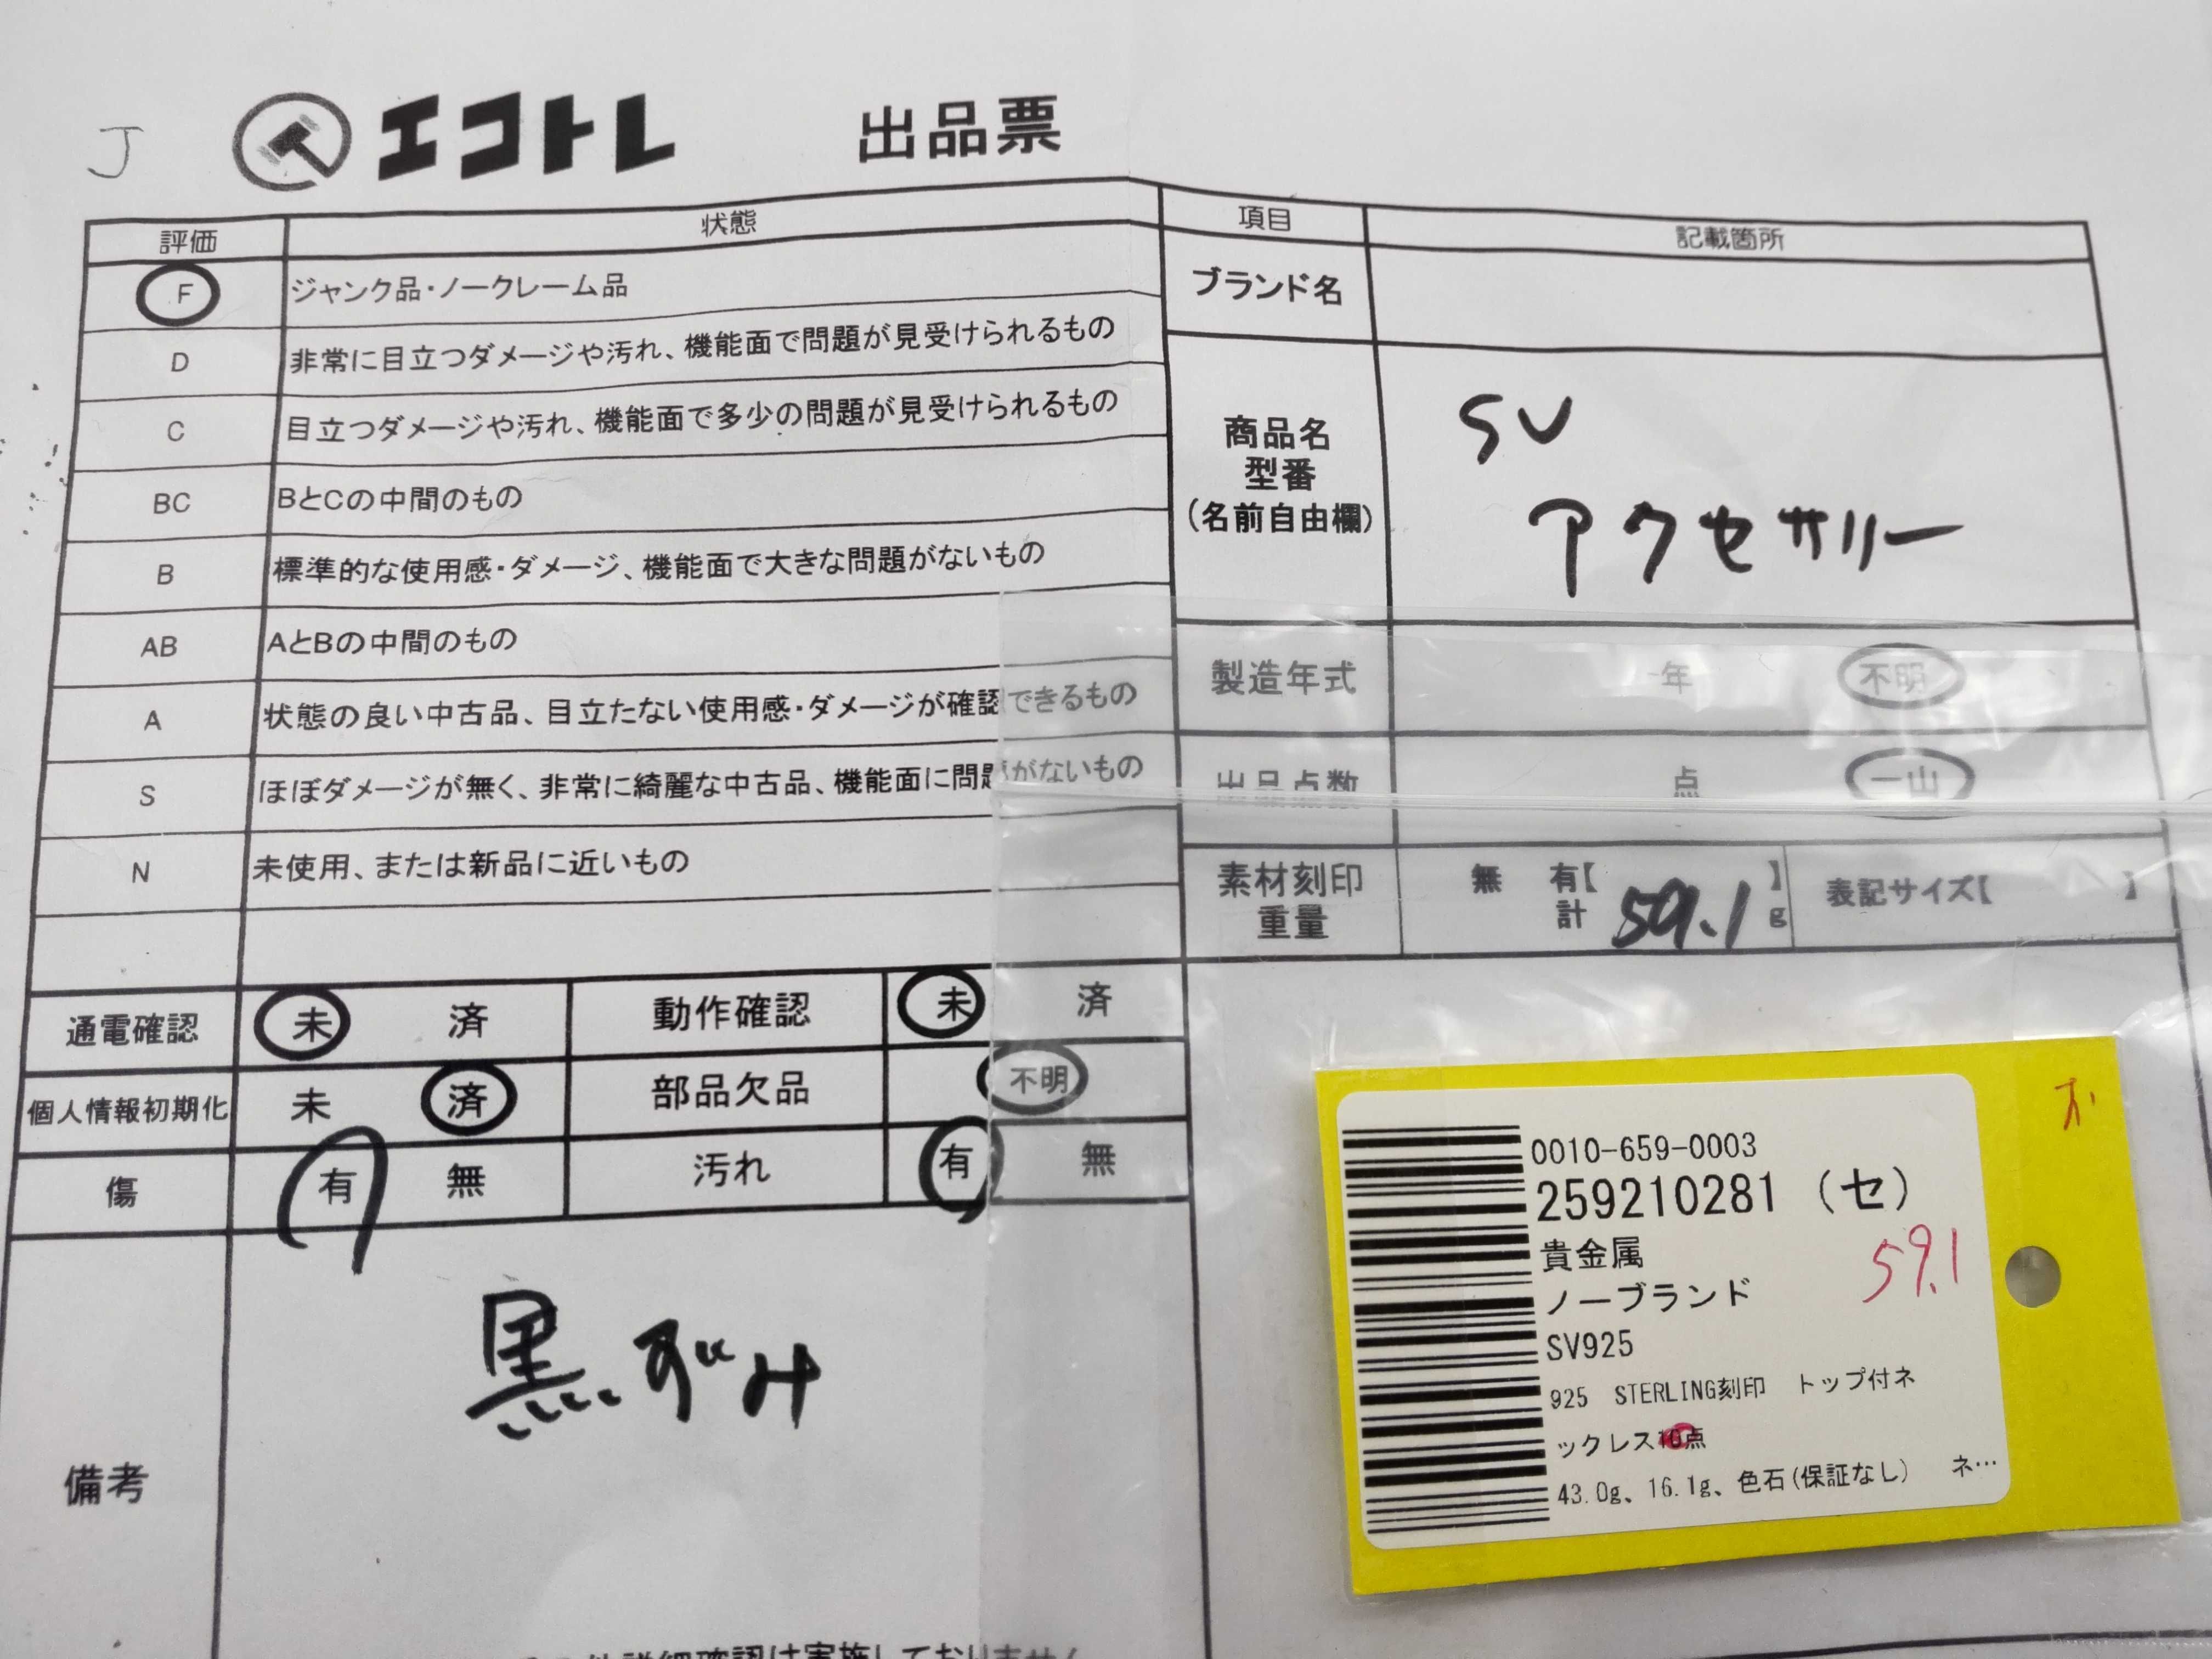 J
エコトレ 出品票
評価 状態
F ジャンク品・ノークレーム品
D 非常に目立つダメージや汚れ、機能面で問題が見受けられるもの
C 目立つダメージや汚れ、機能面で多少の問題が見受けられるもの
BC BとCの中間のもの
B 標準的な使用感・ダメージ、機能面で大きな問題がないもの
AB AとBの中間のもの
A 状態の良い中古品、目立たない使用感・ダメージが確認できるもの
S ほぼダメージが無く、非常に綺麗な中古品、機能面に問題がないもの
N 未使用、または新品に近いもの
通電確認 未 済 動作確認 未 済
個人情報初期化 未 済 部品欠品 不明
傷 有 無 汚れ 有 無
備考 黒ずみ
項目 記載箇所
ブランド名
商品名
型番
(名前自由欄)
SV
アクセサリー
製造年式 年 不明
出品点数 点 一山
素材刻印 無 有【 】 表記サイズ【 】
重量 計 59.1 g
0010-659-0003
259210281 (セ)
貴金属
ノーブランド
59.1
SV925
925 STERLING刻印 トップ付ネ
ックレス 点
43.0g、16.1g、色石(保証なし) ネ…
詳細確認は実施しておりません